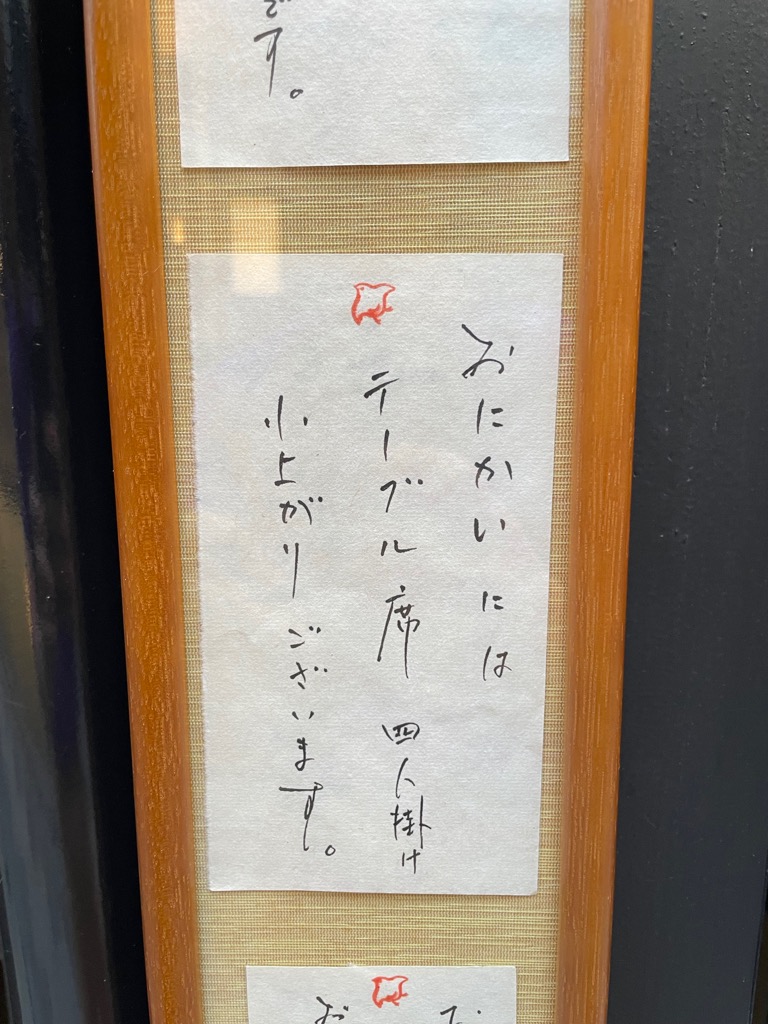 です。
おにかいには
テーブル席 四人掛け
小上がりございます。
お
お